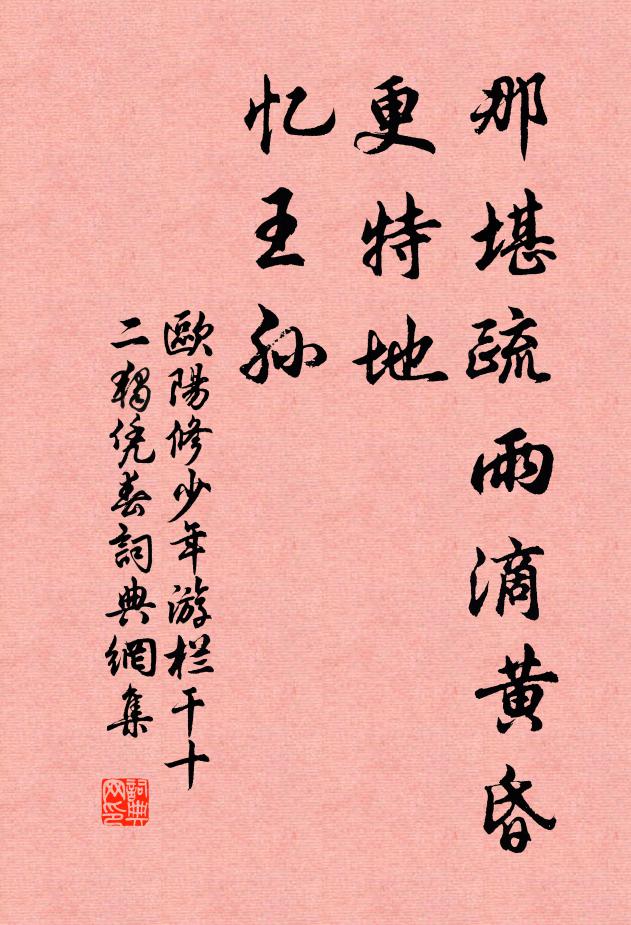 那堪疏雨滴黄昏
更特地
忆王孙
歐陽修少年游栏干十
二獨凭春詞典網集
詞典网印